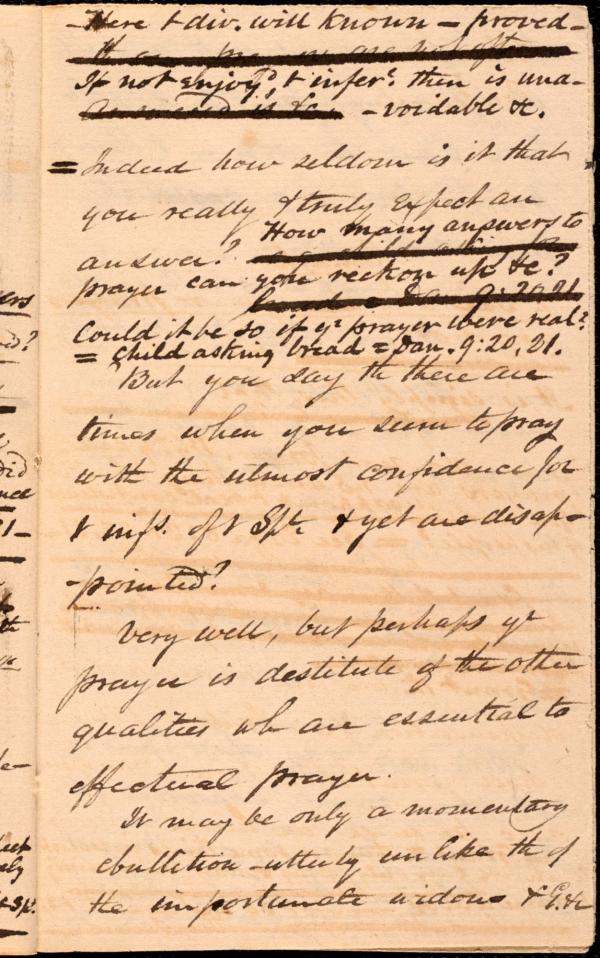 Here t div. will known – proved –
If not enjoyd, t inferc. then is una-
-voidable &c.
= Indeed how seldom is it that
you really & truly expect an
answer? How many answers to
prayer can you reckon up &c?
Could it be so if yr prayer were real?
= Child asking bread = Dan. 9:20, 21.
But you say th there are
times when you seem to pray
with the utmost confidence for
t infs. of t Spt. & yet are disap-
-pointed?
Very well, but perhaps yr
prayer is destitute of the other
qualities wh are essential to
effectual prayer.
It may be only a momentary
ebullition – utterly unlike th of
the importunate widow &c